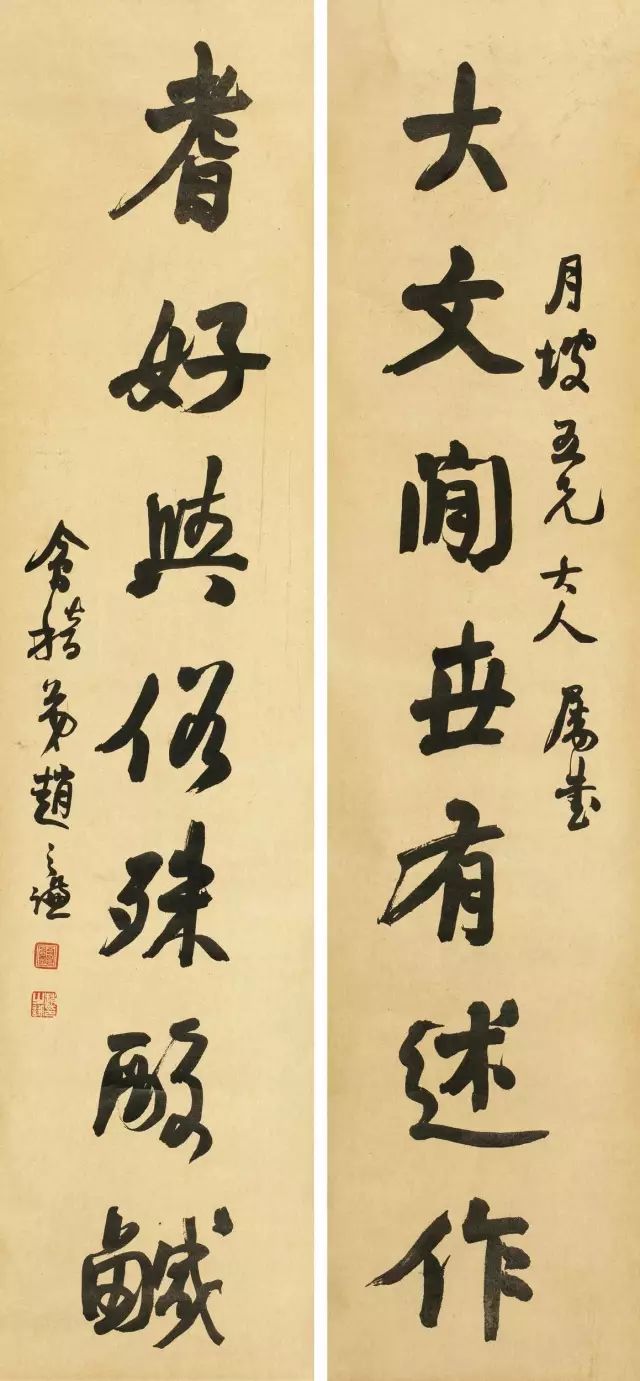 月坡五兄大人屬書
大文閒世有述作
耆好與俗殊酸鹹
會稽弟趙之謙